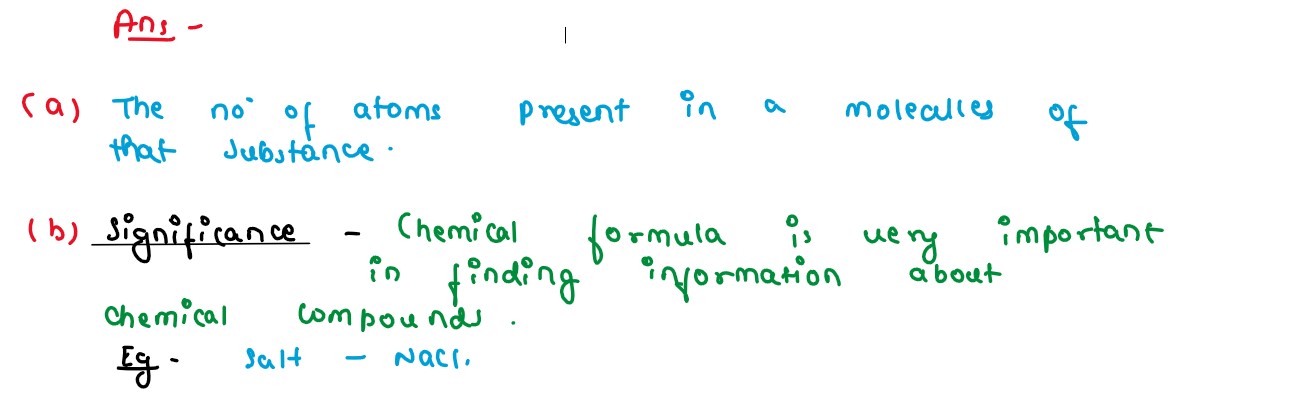 Ans -
(a) The no. of atoms present in a molecules of
that substance.
(b) Significance - Chemical formula is very important
in finding information about
chemical compounds.
Eg - Salt - NaCl.